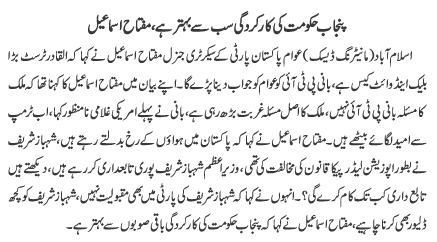 پنجاب حکومت کی کارکردگی سب سے بہتر ہے، مفتاح اسماعیل
اسلام آباد (مانیٹرنگ ڈیسک) عوام پاکستان پارٹی کے سیکرٹری جنرل مفتاح اسماعیل نے کہا کہ القادر ٹرسٹ بڑا
بلیک اینڈ وائٹ کیس ہے، بانی پی ٹی آئی کو عوام کو جواب دینا پڑے گا۔ اپنے بیان میں مفتاح اسماعیل کا کہنا تھا کہ ملک
کا مسئلہ بانی پی ٹی آئی نہیں، ملک کا اصل مسئلہ غربت بڑھ رہی ہے، بانی نے پہلے امریکی غلامی نامنظور کہا، اب ٹرمپ
سے امید لگائے بیٹھے ہیں۔ مفتاح اسماعیل نے کہا کہ پاکستان میں ہواؤں کے رخ بدلتے رہتے ہیں، شہباز شریف
نے بطور اپوزیشن لیڈر پیکا قانون کی مخالفت کی تھی، وزیر اعظم شہباز شریف پوری تابعداری کر رہے ہیں، دیکھتے ہیں
تابع داری کب تک کام کرے گی؟ انہوں نے کہا کہ شہباز شریف کی پارٹی میں بھی مقبولیت نہیں، شہباز شریف کو کچھ
ڈلیور بھی کرنا چاہیے، مفتاح اسماعیل نے کہا کہ پنجاب حکومت کی کارکردگی باقی صوبوں سے بہتر ہے۔